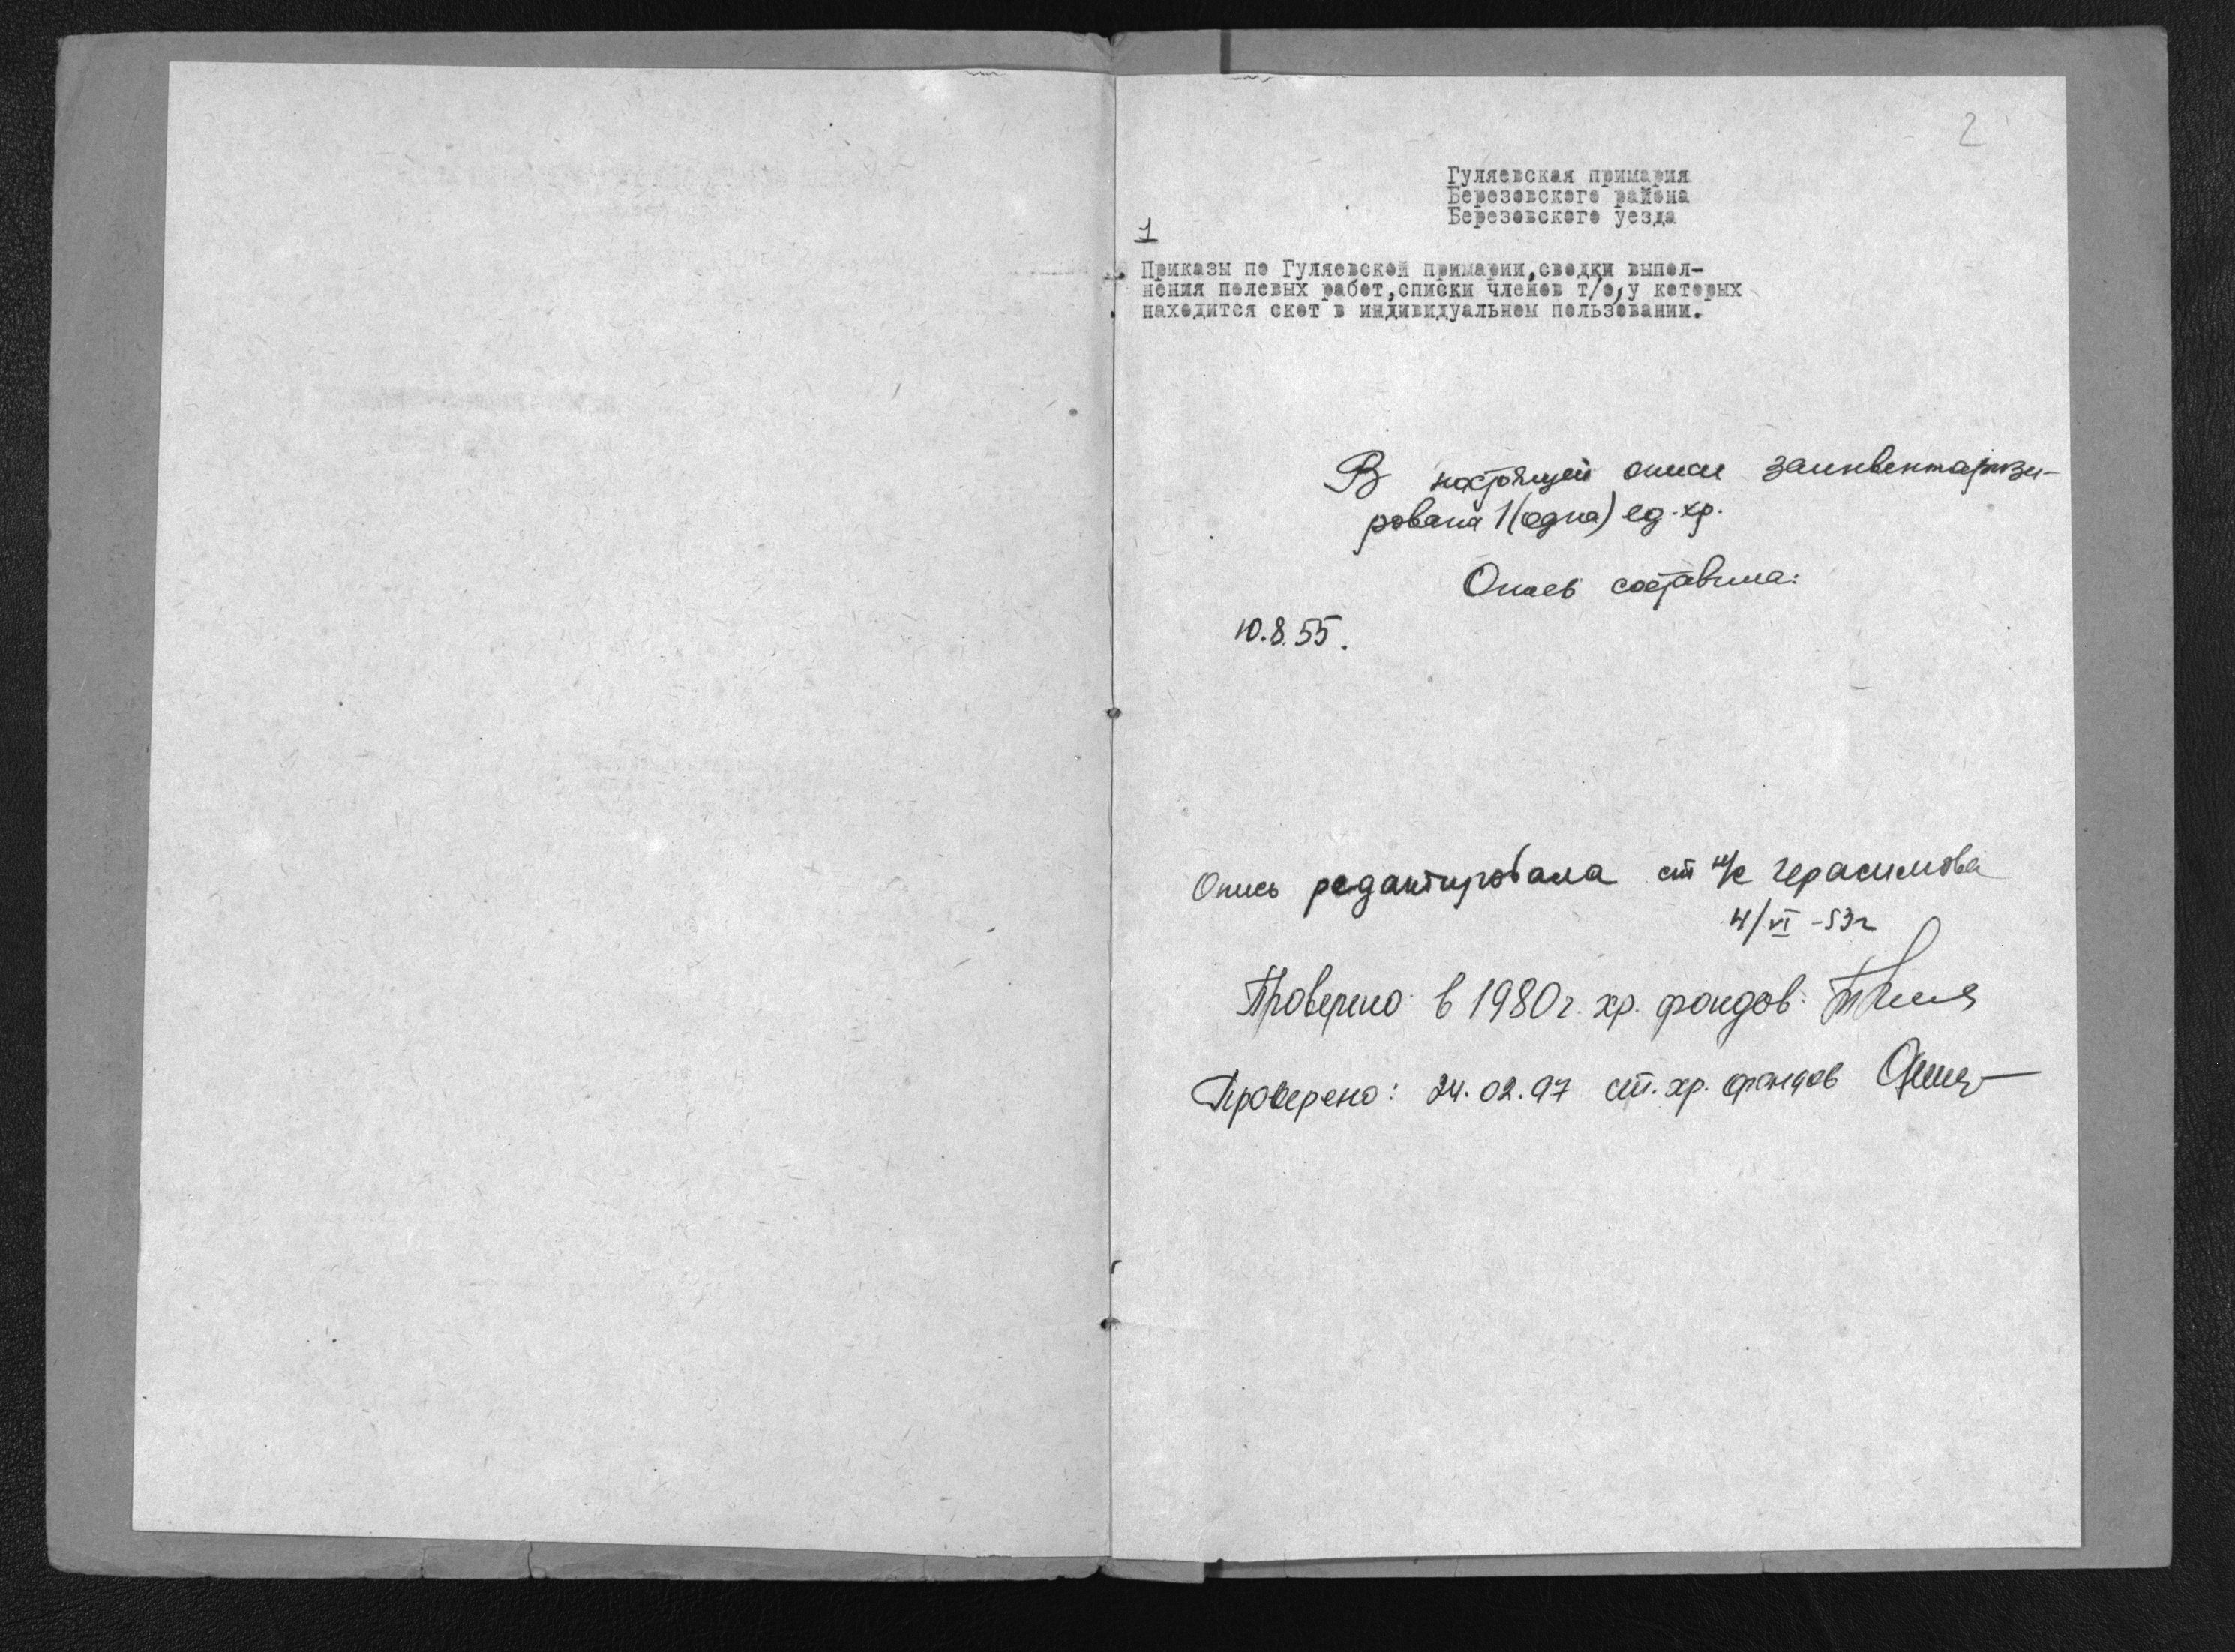 2
Гуляевская примария
Березовского района
Березовского уезда
1
Приказы по Гуляевской примарии,сводки выпол-
нения полевых работ,списки членов т/о,у которых
находится скот в индивидуальном пользовании.
В настоящей описи заинвентаризи-
рована 1(одна) ед.хр.
Опись составила:
10.8.55.
Опись редактировала ст н/с Герасимова
4/VI -53г
Проверено в 1980г. хр. фондов
Проверено: 24.02.97 ст. хр. фондов